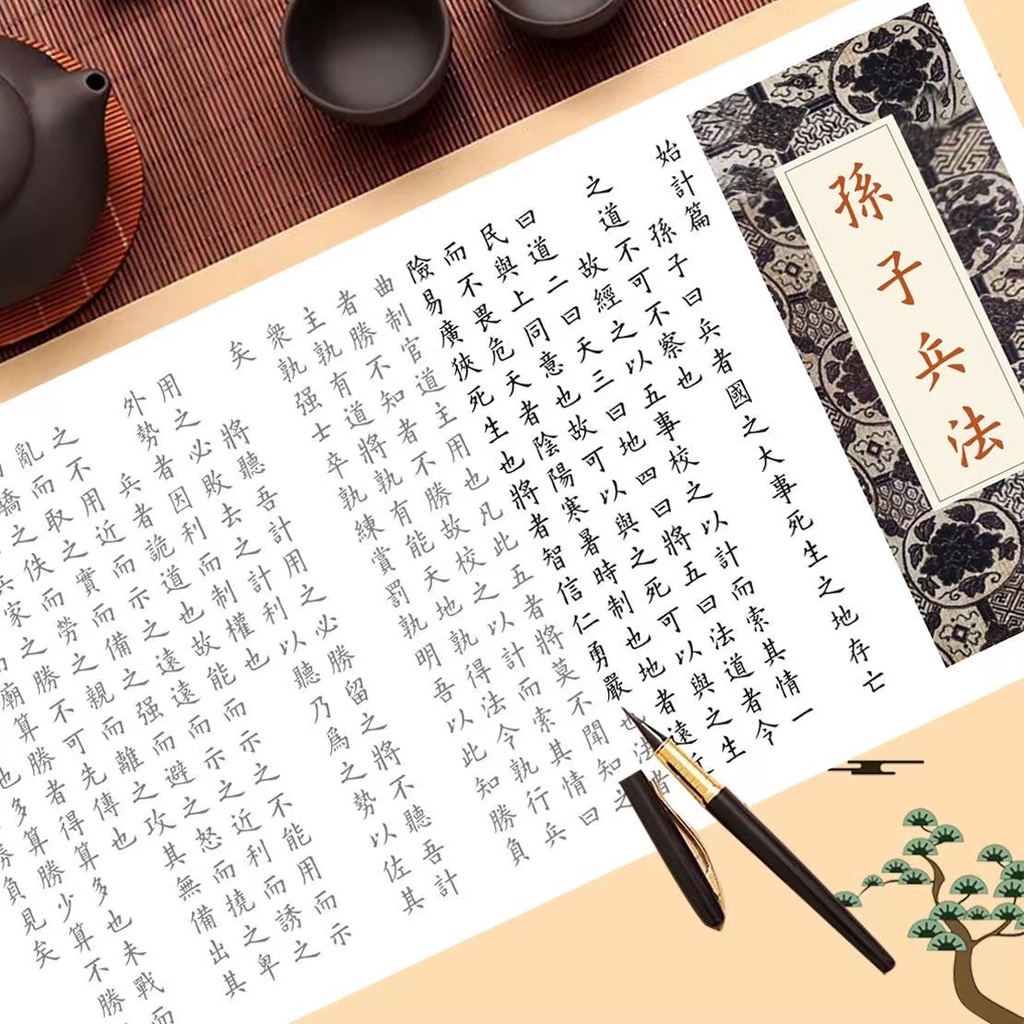 孫子兵法
始計篇
孫子曰兵者國之大事死生之地存亡
之道不可不察也
故經之以五事校之以計而索其情一
曰道二曰天三曰地四曰將五曰法道者令
民與上同意也故可以與之死可以與之生
而不畏危天者陰陽寒暑時制也地者遠近
險易廣狹死生也將者智信仁勇嚴也法者
曲制官道主用也凡此五者將莫不聞知之
者勝不知者不勝故校之以計而索其情曰
主孰有道將孰有能天地孰得法令孰行兵
衆孰强士卒孰練賞罰孰明吾以此知勝負
矣
將聽吾計用之必勝留之將不聽吾計
用之必敗去之計利以聽乃爲之勢以佐其
外勢者因利而制權也
兵者詭道也故能而示之不能用而示
之不用近而示之遠遠而示之近利而誘之
亂而取之實而備之强而避之怒而撓之卑
而驕之佚而勞之親而離之攻其無備出其
兵家之勝不可先傳也
廟算勝者得算多也未戰而
也多算勝少算不勝
勝負見矣